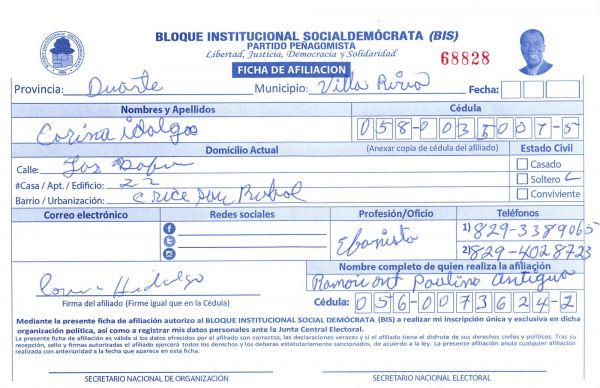 BLOQUE INSTITUCIONAL SOCIALDEMÓCRATA (BIS)
PARTIDO PEÑAGOMISTA
Libertad, Justicia, Democracia y Solidaridad
68828
FICHA DE AFILIACION
Provincia: Duarte Municipio: Villa Riva Fecha:
Nombres y Apellidos Cédula
Corina idalgo 058-0035007-5
Domicilio Actual (Anexar copia de cédula del afiliado) Estado Civil
Calle: Los Casado
#Casa / Apt. / Edificio: 22 Soltero
Barrio / Urbanización: Conviviente
Correo electrónico Redes sociales Profesión/Oficio Teléfonos
Ebanista
1) 829-3389065
2) 829-4028723
Nombre completo de quien realiza la afiliación
Hidalgo Paulino Antigua
Firma del afiliado (Firme igual que en la Cédula) Cédula: 056-0073624-2
Mediante la presente ficha de afiliación autorizo al BLOQUE INSTITUCIONAL SOCIAL DEMÓCRATA (BIS) a realizar mi inscripción única y exclusiva en dicha
organización política, así como a registrar mis datos personales ante la Junta Central Electoral.
La presente ficha de afiliación es válida si los datos ofrecidos por el afiliado son correctos, las declaraciones veraces y si el afiliado tiene el disfrute de sus derechos civiles y políticos. Tras su
recepción, sello y firmas autorizadas el afiliado ejercerá todos los derechos y los deberes estatutariamente sancionados, de acuerdo a la ley. La presente afiliación anula cualquier afiliación
realizada con anterioridad a la fecha que aparece en esta ficha.
SECRETARIO NACIONAL DE ORGANIZACIÓN SECRETARIO NACIONAL ELECTORAL